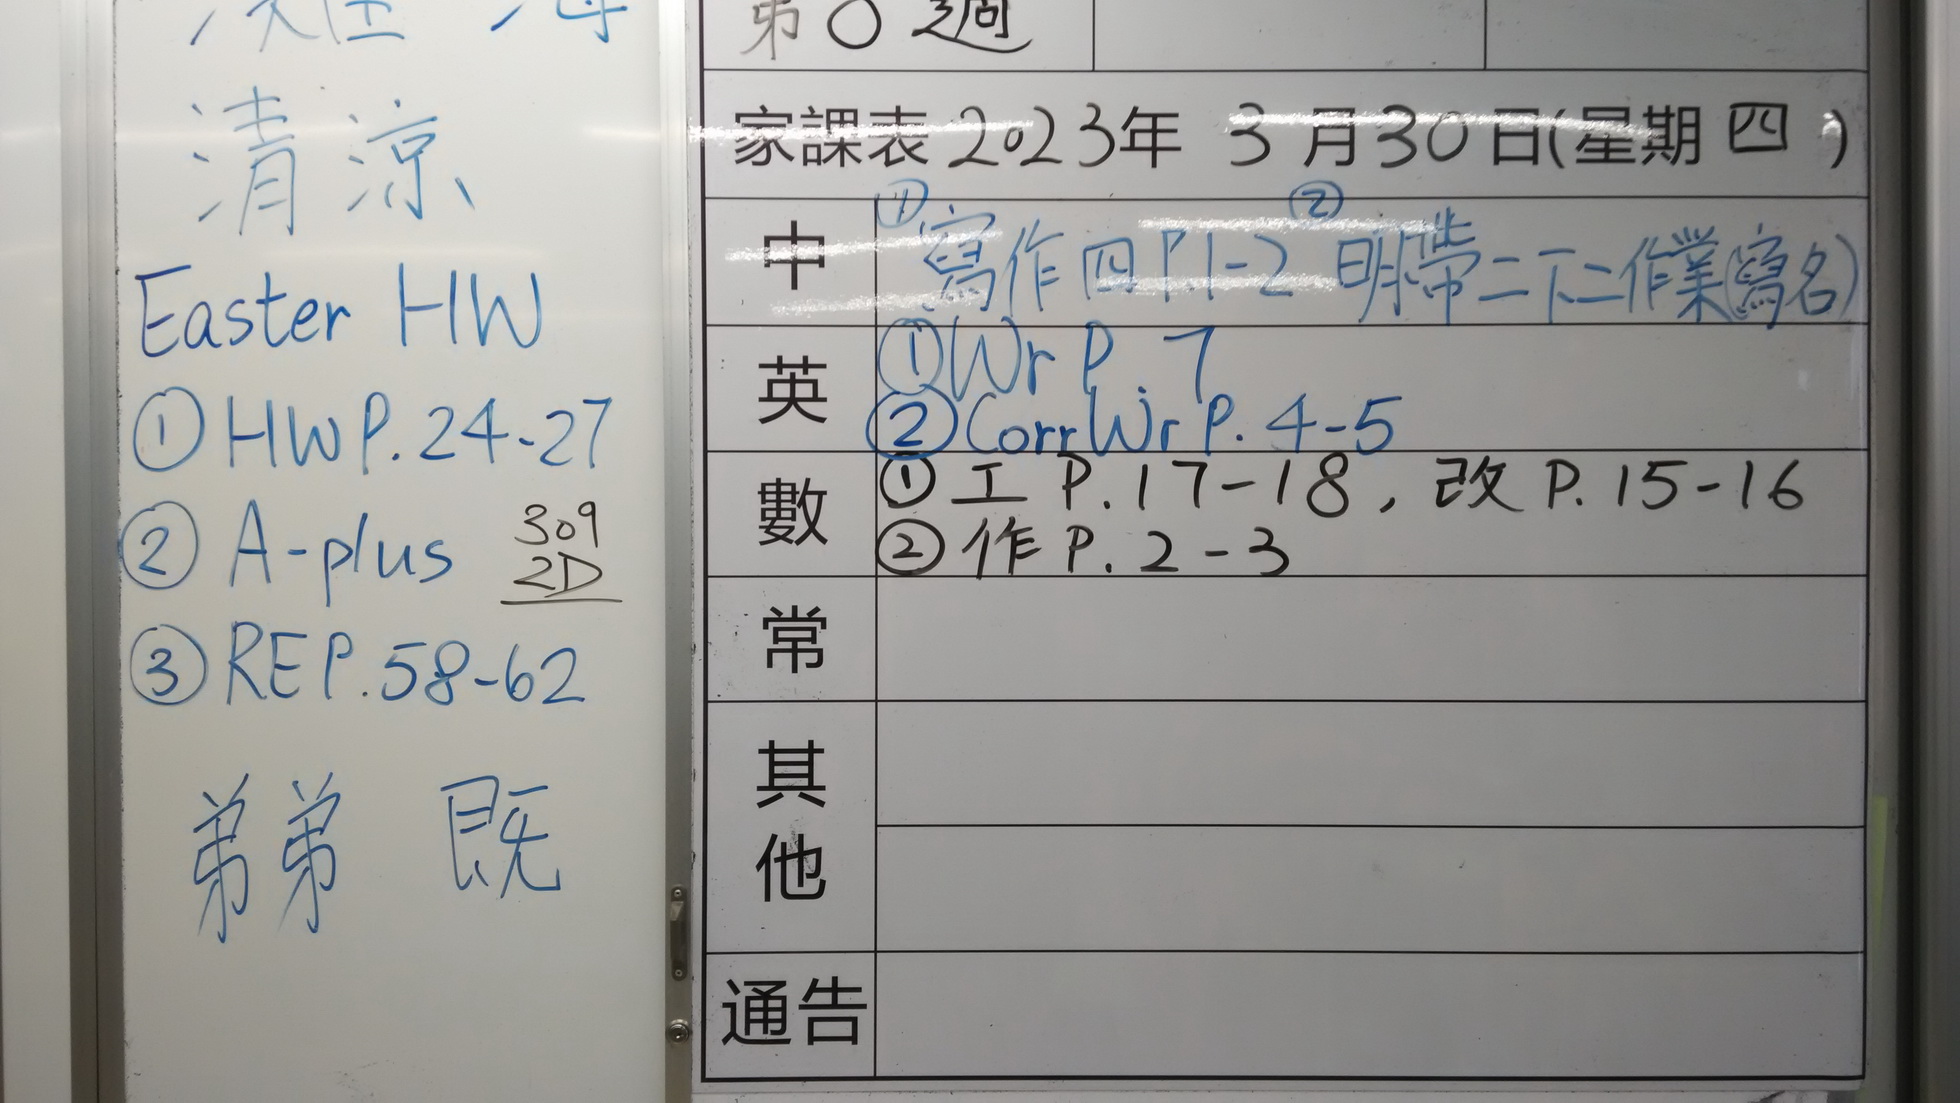 清涼
Easter HW
① HW P.24-27
② A-plus
309
2D
③ RE P.58-62
弟弟 既
第 週
家課表 2023年 3月30日(星期四)
中 ① 寫作四 P.1-2 ② 明帶二下二作業(寫名)
英 ① Wr P.7
② Corr Wr P. 4-5
數 ① 工 P.17-18, 改 P.15-16
② 作 P.2-3
常
其他
通告